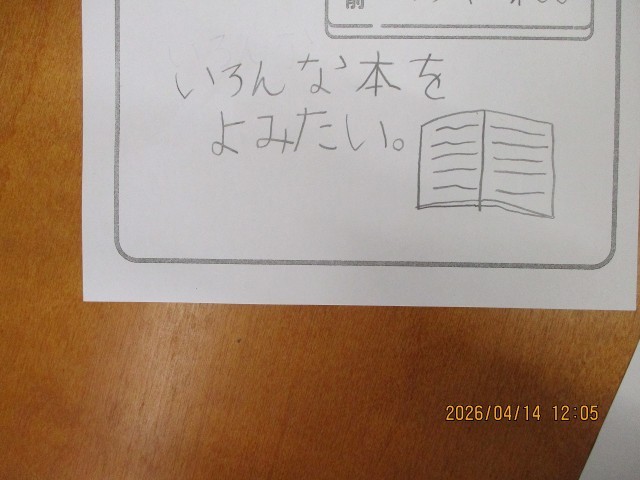 前
いろんな本を
よみたい。
2026/04/14 12:05